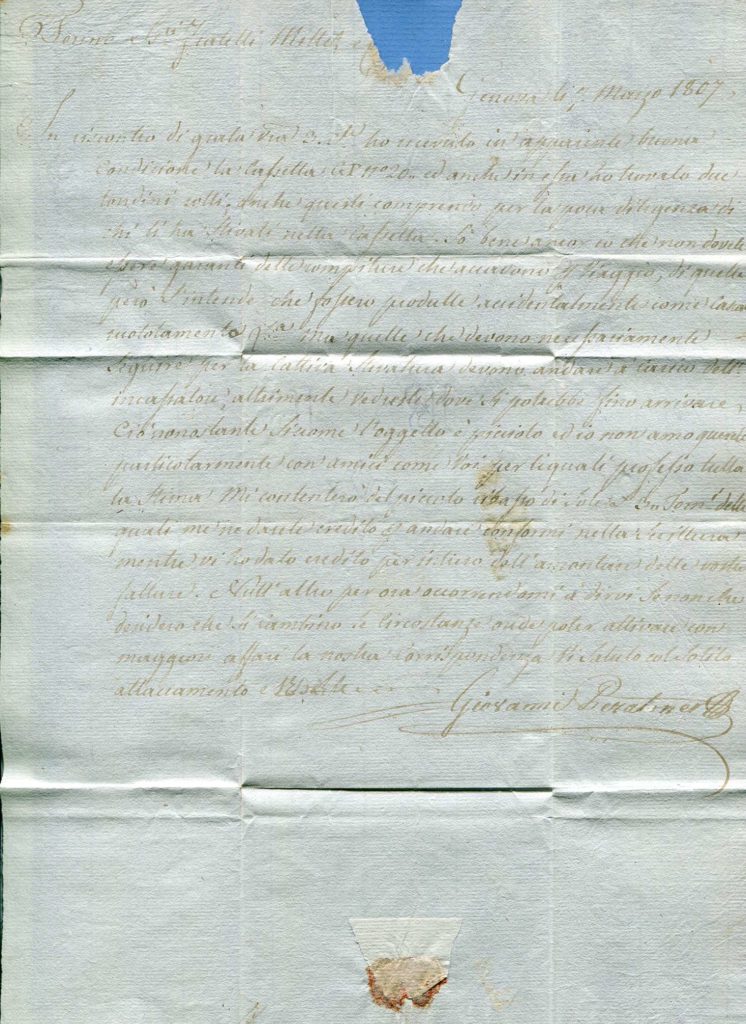 Torino Sri Fratelli Millet
Genova li 7 Marzo 1807
In riscontro di grata vra 3 ho ricevuto in apparente buona
condizione la Cassetta N° 20 ed anche in essa ho trovato due
tondini rotti, anche questi comprendo per la poca diligenza di
chi li ha stivati nella Cassetta. So bene ancor io che non dovete
essere garanti delle rompiture che accadono viaggio, di quelle
però s'intende che fossero prodotte accidentalmente come
ma quelle che devono necessariamente
seguire per la cattiva stivatura devono andare a carico dell'
incassatore, altrimente vedreste dove si potrebbe fino arrivare,
Ciò nonostante siccome l'oggetto è picciolo ed io non amo
particolarmente con amici come Voi per li quali professo tutta
la stima Mi contenterò del piccolo di Sole delle
quali me ne darete credito andare conformi nella scrittura
mentre vi ho dato credito per intiero dell'amontare delle vostre
fatture. Null'altro per ora occorrendomi a dirvi se non che
desidero che si cambino le circostanze onde poter attivare con
maggiori affari la nostra Corrispondenza Vi saluto col solito
attaccamento
Giovanni